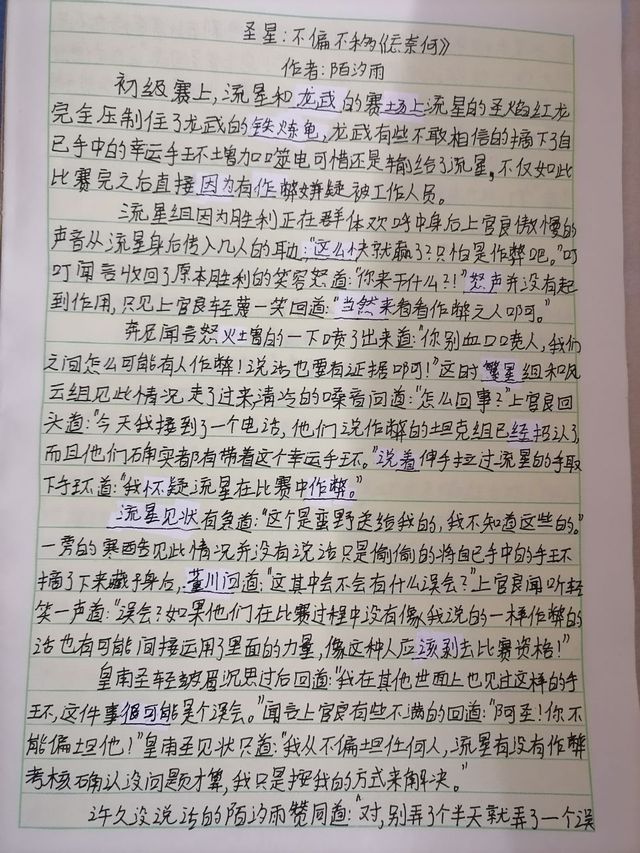 圣星:不偏不移《云奈何》
作者:陌汐雨
初级赛上,流星和龙武的赛场上流星的圣焰红龙
完全压制住了龙武的铁炼龟,龙武有些不敢相信的摘下了自
己手中的幸运手环不增加口噬电可惜还是输给了流星,不仅如此
比赛完之后直接因为有作弊嫌疑被工作人员。
流星组因为胜利正在群体欢呼中身后上官良傲慢的
声音从流星身后传入几人的耳边,"这么快就赢了?只怕是作弊吧。"叮
叮闻言收回了原本胜利的笑容怒道:"你来干什么?!"怒声并没有起
到作用,只见上官良轻蔑一笑回道:"当然来看看作弊之人叩可。"
奔尼闻言怒火噌的一下喷了出来道:"你别血口喷人,我们
之间怎么可能有人作弊!说话也要有证据叩可!"这时繁星组和风
云组见此情况走了过来,清冷的嗓音问道:"怎么回事?"上官良回
头道:"今天我接到了一个电话,他们说作弊的坦克组已经招认了,
而且他们确实都有带着这个幸运手环。"说着伸手拉过流星的手取
下手环道:"我怀疑流星在比赛中作弊。"
流星见状有急道:"这个是蛮野送给我的,我不知道这些的。"
一旁的寒酉夸见此情况并没有说话只是偷偷的将自己手中的手环
摘了下来藏于身后,董川问道:"这其中会不会有什么误会?"上官良闻听轻
笑一声道:"误会?如果他们在比赛过程中没有像我说的一样作弊的
话也有可能间接运用了里面的力量,像这种人应该剥去比赛资格!"
皇南圣轻皱眉沉思过后回道:"我在其他世面上也见过这样的手
环,这件事很可能是个误会。"闻言上官良有些不满的回道:"阿圣!你不
能偏坦他!"皇南圣见状只道:"我从不偏坦任何人,流星有没有作弊
考核确认没问题才算,我只是按我的方式来解决。"
许久没说话的陌汐雨赞同道:"对,别弄了个半天就弄了一个误